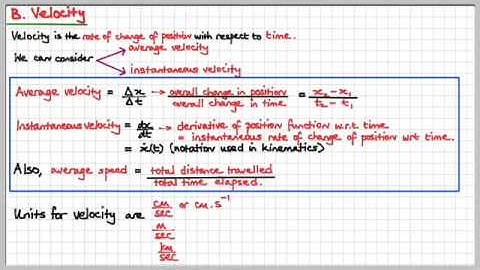 B. Velocity
Velocity is the rate of change of position with respect to time.
We can consider
average velocity
instantaneous velocity
Average velocity = Δx/Δt → overall change in position/overall change in time = x₂-x₁/t₂-t₁
Instantaneous velocity = dx/dt → derivative of position function w.r.t. time
= instantaneous rate of change of position wrt time.
= ẋ(t) (notation used in kinematics)
Also, average speed = total distance travelled/total time elapsed.
Units for velocity are cm/sec or cm.s⁻¹
m/sec
km/sec